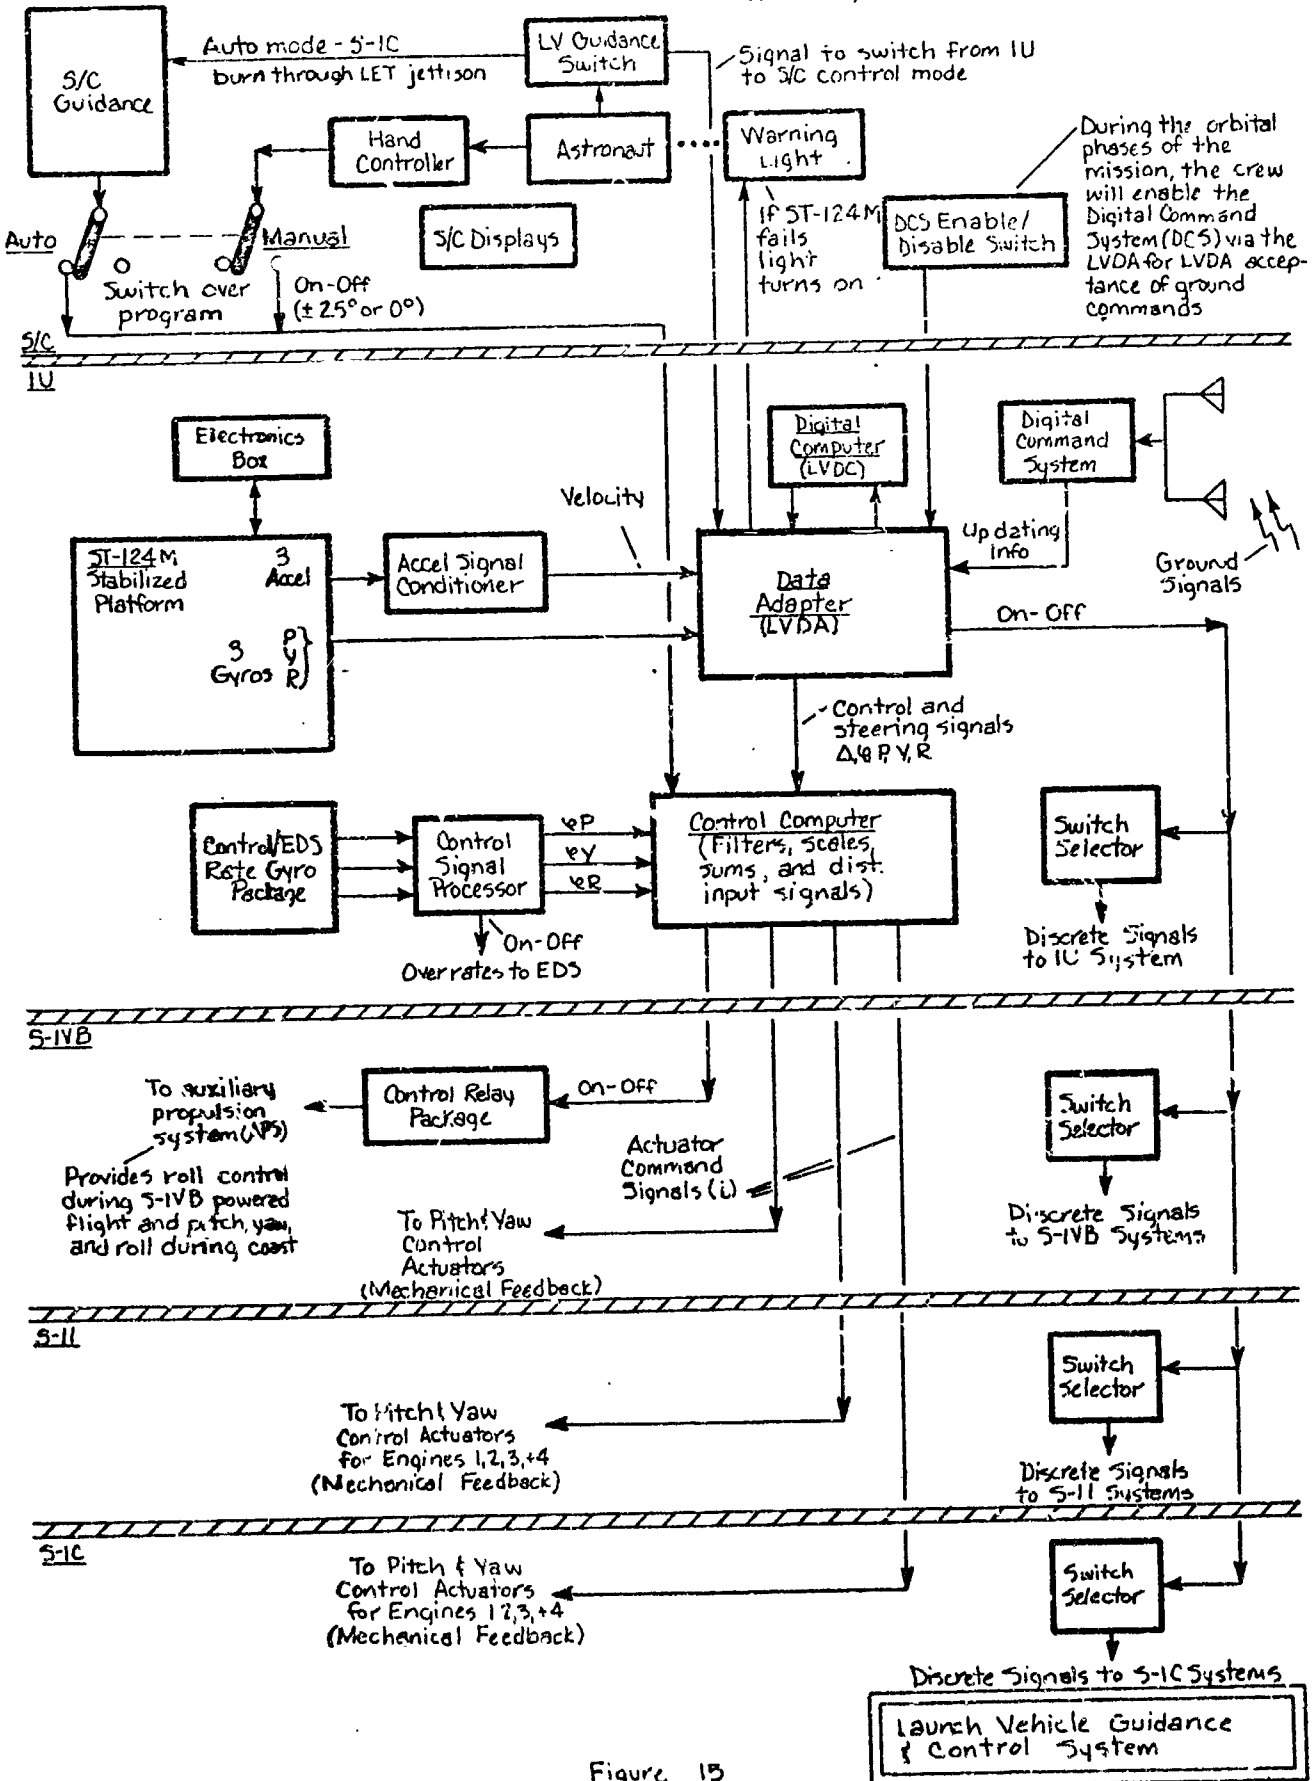 S/C
Guidance
Auto mode - S-1C
burn through LET jettison
LV Guidance
Switch
Signal to switch from IU
to S/C control mode
Hand
Controller
Astronaut
Warning
Light
During the orbital
phases of the
mission, the crew
will enable the
Digital Command
System (DCS) via the
LVDA for LVDA accep-
tance of ground
commands
Auto
Manual
S/C Displays
If ST-124M
fails
light
turns on
DCS Enable/
Disable Switch
Switch over
program
On-Off
(± 2.5° or 0°)
S/C
IU
Electronics
Box
Digital
Computer
(LVDC)
Digital
Command
System
Velocity
ST-124M
Stabilized
Platform
3
Accel
3
Gyros
P
Y
R
Accel Signal
Conditioner
Data
Adapter
(LVDA)
Updating
Info
Ground
Signals
On-Off
Control and
steering signals
P, Y, R
Control/EDS
Rate Gyro
Package
Control
Signal
Processor
φP
φY
φR
Control Computer
(Filters, scales,
sums, and dist.
input signals)
Switch
Selector
On-Off
Overrates to EDS
Discrete Signals
to IU System
S-IVB
To auxiliary
propulsion
system (APS)
Control Relay
Package
On-Off
Switch
Selector
Provides roll control
during S-IVB powered
flight and pitch, yaw,
and roll during coast
Actuator
Command
Signals (i)
To Pitch & Yaw
Control
Actuators
(Mechanical Feedback)
Discrete Signals
to S-IVB Systems
S-II
Switch
Selector
To Pitch & Yaw
Control Actuators
for Engines 1,2,3,+4
(Mechanical Feedback)
Discrete Signals
to S-II Systems
S-IC
To Pitch & Yaw
Control Actuators
for Engines 1 2,3,+4
(Mechanical Feedback)
Switch
Selector
Discrete Signals to S-IC Systems
Launch Vehicle Guidance
& Control System
Figure 15